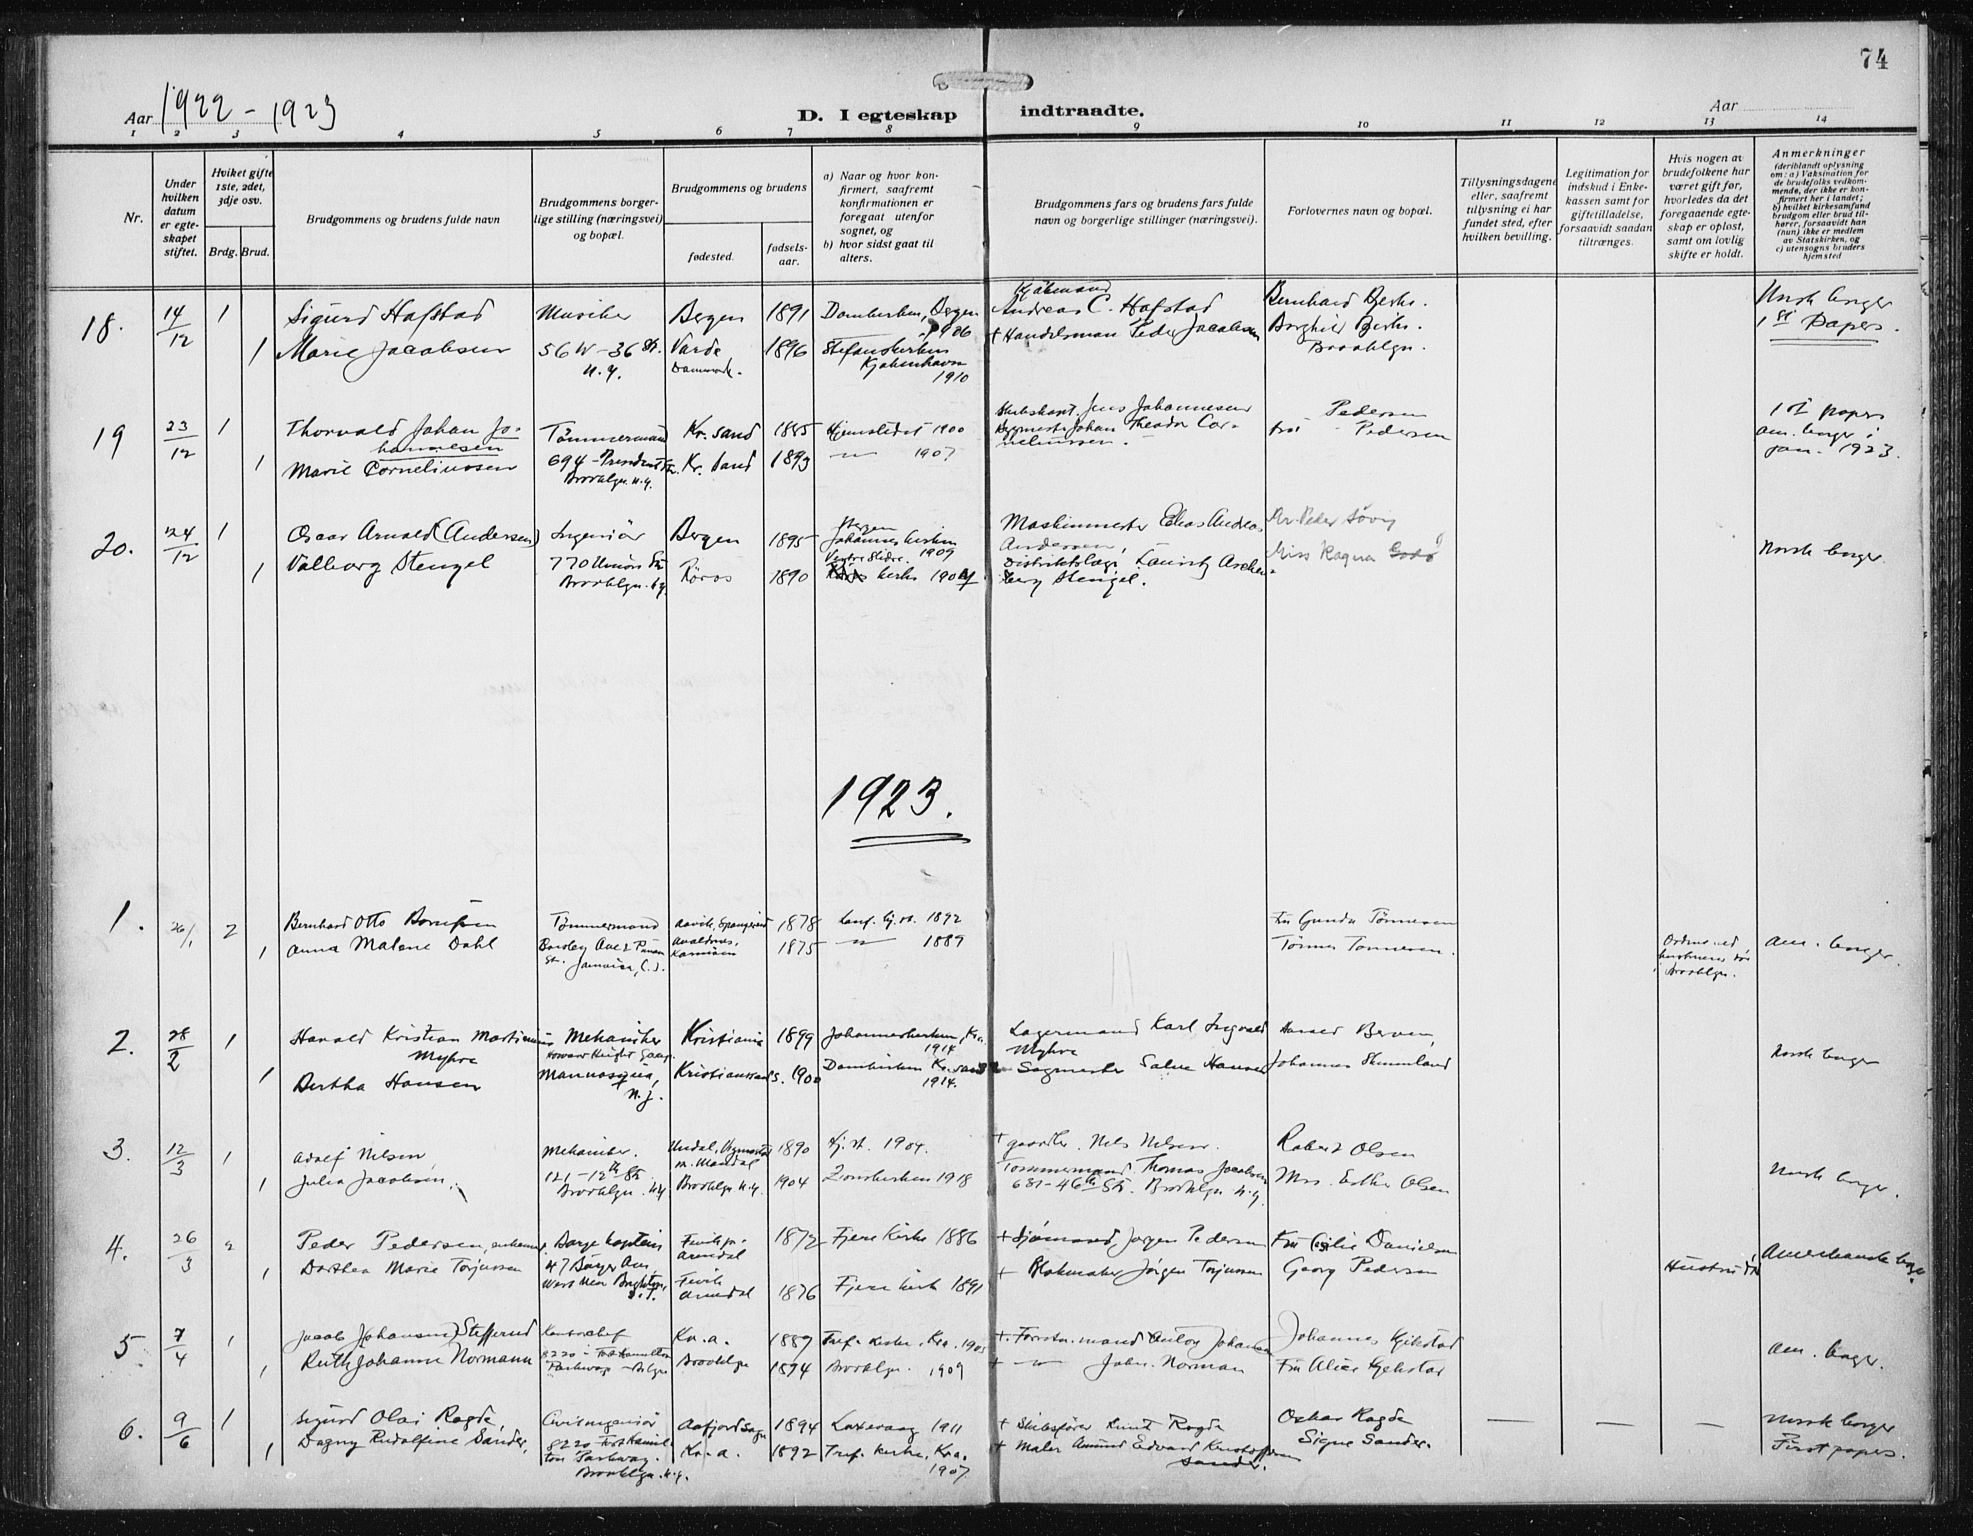 74
Aar 1922 - 1923
D. I egteskap indtraadte.
Aar
1 2 3 4 5 6 7 8 9 10 11 12 13 14
Nr.
Under hvilken datum er egteskapet stiftet.
Hviket gifte 1ste, 2det, 3dje osv.
Brdg. Brud.
Brudgommens og brudens fulde navn
Brudgommens borgerlige stilling (næringsvei) og bopæl.
Brudgommens og brudens
fødested.
fødselsaar.
a) Naar og hvor konfirmert, saafremt konfirmationen er foregaat utenfor sognet, og
b) hvor sidst gaat til alters.
Brudgommens fars og brudens fars fulde navn og borgerlige stillinger (næringsvei).
Forlovernes navn og bopæl.
Tillysningsdagene eller, saafremt tillysning ei har fundet sted, efter hvilken bevilling.
Legitimation for indskud i Enkekassen samt for giftetilladelse, forsaavidt saadan tiltrænges.
Hvis nogen av brudefolkene har været gift før, hvorledes da det foregaaende egteskap er opløst, samt om lovlig skifte er holdt.
Anmerkninger
(deriblandt oplysning om: a) Vaksination for de brudefolks vedkommende, der ikke er konfirmert her i landet; b) hvilket kirkesamfund brudgom eller brud tilhører, forsaavidt han (hun) ikke er medlem av Statskirken, og c) utensogns bruders hjemsted
18. 14/12 1 Sigurd Hafstad Musiker Bergen 1891 Domkirken, Bergen 1906 Kjøbmand Andreas C. Hafstad Bernhard Norsk borger
1 Marie Jacobsen 56 W - 36 St. N.Y. Varde Danmark. 1896 Stefanskirken Kjøbenhavn 1910 + Handelsman Peder Jacobsen Brooklyn. 1st Papers.
19 23/12 1 Thorvald Johan Johannesen Tømmermand Kr. sand 1885 Hjemstedet 1900 Jens Johannesen Pedersen 1st papers
1 Marie Corneliussen 694 - President St. Brooklyn N.Y. Kr. sand 1893 - " - 1907 Johan Theodor Corneliussen. Pedersen am. borger i jan. 1923.
20. 24/12 1 Oscar Arnold (Andersen) Ingeniør Bergen 1895 Bergen Johannes kirken 1909 Maskinmester Elias Andreas Andersen, Peder
1 Valborg Stengel 770 Union St. Brooklyn. N.Y. Röros 1890 Vestre Slidre kirke Distriktslæge Lauritz Stengel. Miss Ragna Norsk borger.
1923.
1. 26/1 2 Bernhard Otto Tømmermand 1878 Konf. hj. st. 1892 Fru Gunda Tønnesen
1 Anna Malene Dahl Jamaica, Avaldsnes, Karmøen 1875 - " - 1889 Tønnes Tønnesen. Brooklyn. am. borger.
2. 28/2 1 Harald Kristian Martinius Myhre Mekaniker Kristiania 1899 Johanneskirken, Kra. 1914 Lagermand Karl Ingvald Myhre Harald
1 Bertha Hansen Manasquan, N.J. Kristianssand S. 1900 Domkirken Kr. sand 1914. Salve Hansen Johannes Norsk borger
3. 12/3 1 Adolf Nilsen Mekaniker. 1890 Hj. st. 1904. + gaardbr. Nels Nelsen. Robert Olsen
1 Julia Jacobsen. 121 - 12th St. Brooklyn N.Y. Brooklyn N.Y. 1904 Zionskirken 1918 Tømmermand Thomas Jacobsen 631 - 46th St. Brooklyn N.Y. Mrs. Esther Olsen Norsk borger.
4. 26/3 2 Peder Pedersen, enkemand Barge kaptein Arendal 1872 Fjære Kirke 1886 + Sjømand Jørgen Pedersen Fru Danielsen
1 Dorthea Marie Torjussen Arendal 1876 Fjære kirke 1891 + Blokmaker Jørgen Torjussen Georg Pedersen Hustru død Amerikansk borger.
5. 7/4 1 Jacob (Johansen) Steffensrud Kontorchef Kr. a. 1887 Tref. kirke, Kra. Anton Johansen Johannes
1 Ruth Johanne Normann 8220 - Fort Hamilton Parkway - Bklyn Brooklyn 1894 Brooklyn. 1909 + - " - John. Norman Fru Alice am. borger.
6. 9/6 1 Sigurd Olai Ragde, Civilingeniør 1894 Laxevaag 1911 + Skibsfører Knut Ragde Oskar Ragde — — — Norsk borger
1 Dagny Rudolfine Sander, 8220 - Fort Hamilton Parkway. Brooklyn. N.Y. Kr. a. 1892 Tref. kirke, Kra. 1907 + Maler Amund Edvard Kristoffersen Sander. Signe Sander. First papers.